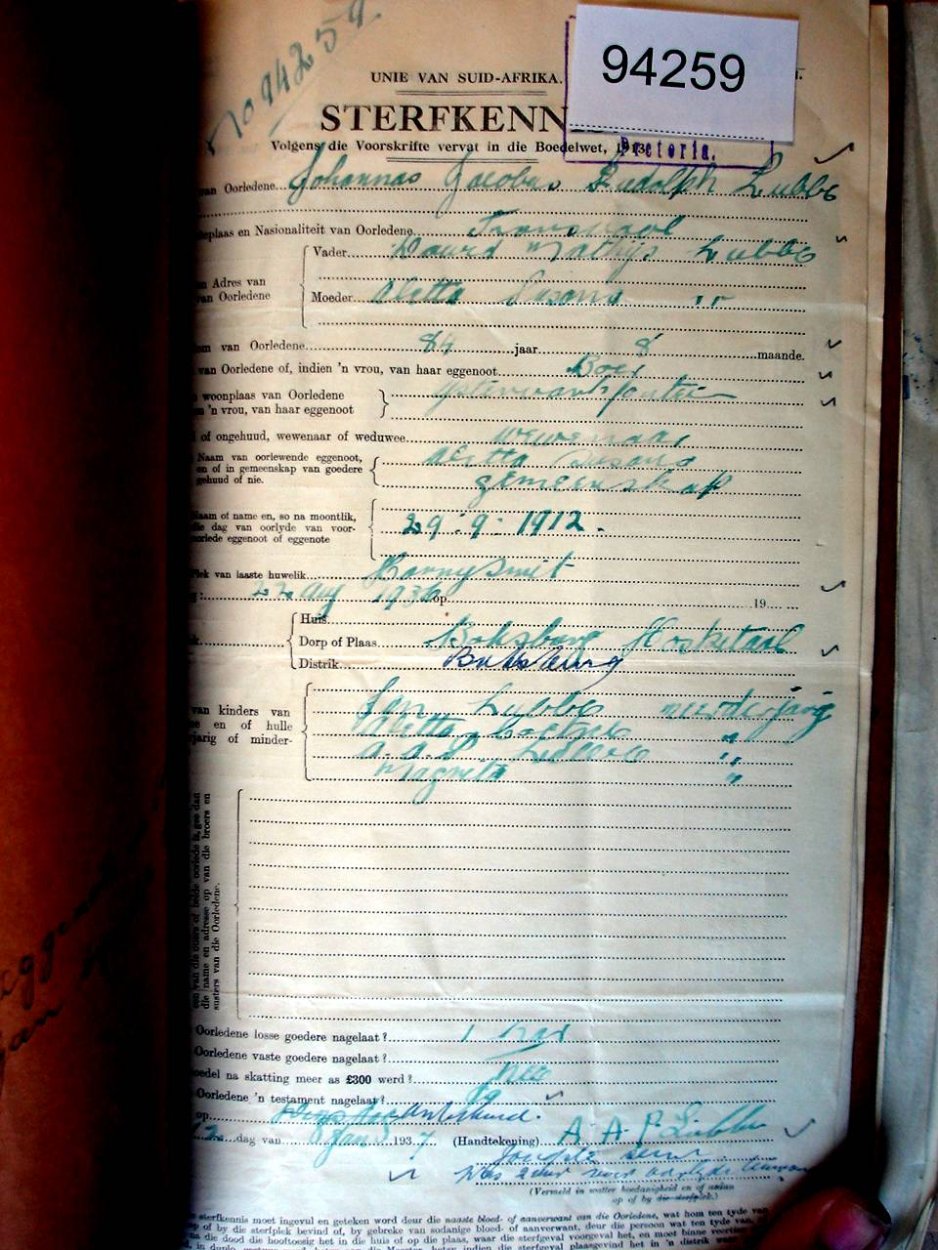 No 94259
94259
UNIE VAN SUID-AFRIKA.
STERFKENN
Volgens die Voorskrifte vervat in die Boedelwet, 1913.
Pretoria.
van Oorledene Johannas Jacobus Rudolph Lubbe
eplaas en Nasionaliteit van Oorledene Transvaal
Vader Dawid Mathijs Lubbe
n Adres van
an Oorledene
Moeder Aletta Susana "
om van Oorledene 84 jaar 8 maande.
van Oorledene of, indien 'n vrou, van haar eggenoot Boer
woonplaas van Oorledene
n 'n vrou, van haar eggenoot
Ysterwarkfontein
of ongehuud, wewenaar of weduwee wewenaar
Naam van oorlewende eggenoot,
en of in gemeenskap van goedere
gehuud of nie.
Aletta Susana
gemeenskap
Naam of name en, so na moontlik,
die dag van oorlyde van voor-
oorlede eggenoot of eggenote
29.9.1912.
lek van laaste huwelik
22 Aug 1936 op 19
Huis
Dorp of Plaas Boksburg Hospitaal
Distrik Boksburg
van kinders van
e en of hulle
jarig of minder-
Jan Lubbe meerderjarig
Aletta "
A.A.P. Lubbe "
Magrieta "
die name en adresse op van die broers en
susters van die Oorledene.
Oorledene losse goedere nagelaat? 1 kar
Oorledene vaste goedere nagelaat?
oedel na skatting meer as £300 werd? nee
Oorledene 'n testament nagelaat? Ja
op onbekend.
12 dag van Jan 1937. (Handtekening) A. A. P. Lubbe
Was
(Vermeld in watter hoedanigheid en of
op of by die sterfplek.)
sterfkennis moet ingevul en geteken word deur die naaste bloed- of aanverwant van die Oorledene, wat ten tyde van
op of by die sterfplek bevind of, by gebreke van sodanige bloed- of aanverwant, deur die persoon wat ten tyde van
na die dood die hooftoesig het in die huis of op die plaas, waar die sterfgeval voorgeval het, en moet binne